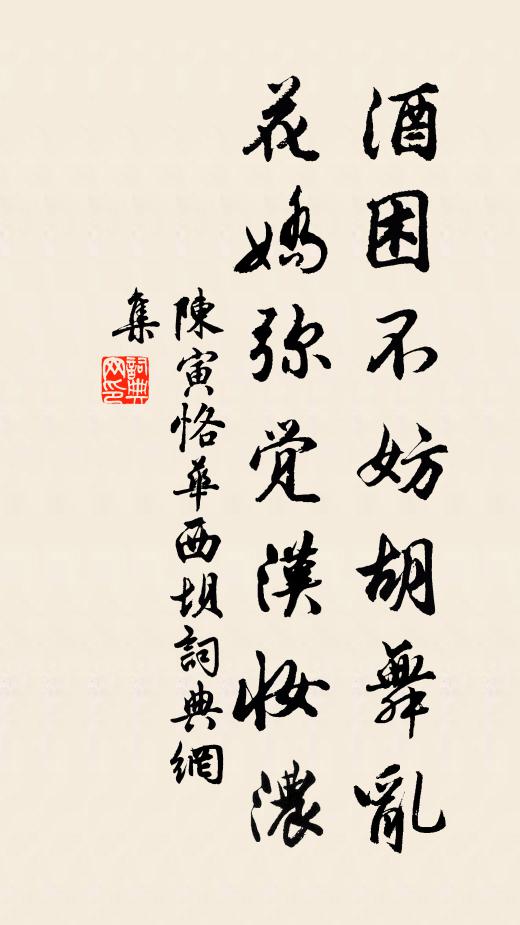 酒困不妨胡舞亂
花嬌弥覺漢妆濃
陳寅恪華西坝詞典網
集
詞典网印